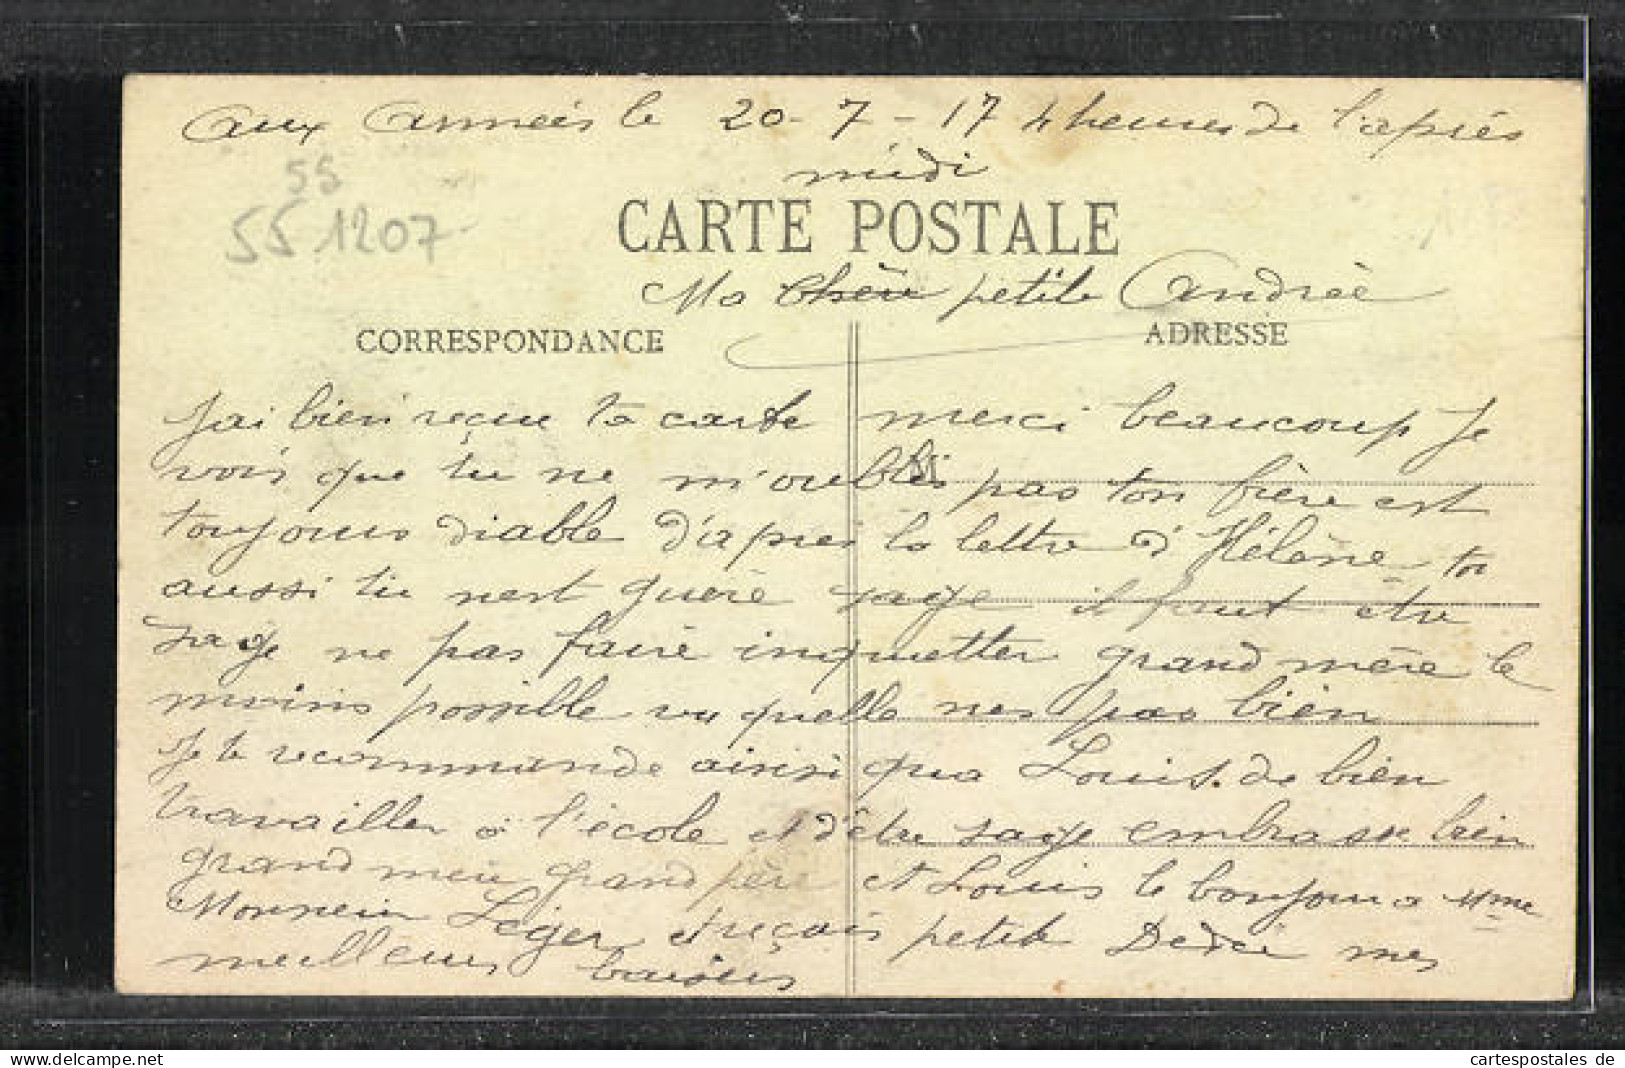 Aux Armées le 20-7-17 4 heures de l'après
midi
55
55 1207
CARTE POSTALE
Ma Chère petite Andrée
CORRESPONDANCE
ADRESSE
J'ai bien reçue ta carte merci beaucoup Je
vois que tu ne m'oublis pas ton frère est
toujours diable d'après la lettre d'Hélène toi
aussi tu nest guère sage il faut etre
sage ne pas faire inquietter grand mère le
moins possible vu quelle nes pas bien
Je te recommande ainsi qua Louis. de bien
travailler à l'école et d'être sage embrasse bien
grand mère grand père et Louis le bonjour a Mme
Monsieur Léger et reçois petite Dedée mes
meilleurs baisers
hood.de
cartespostales de